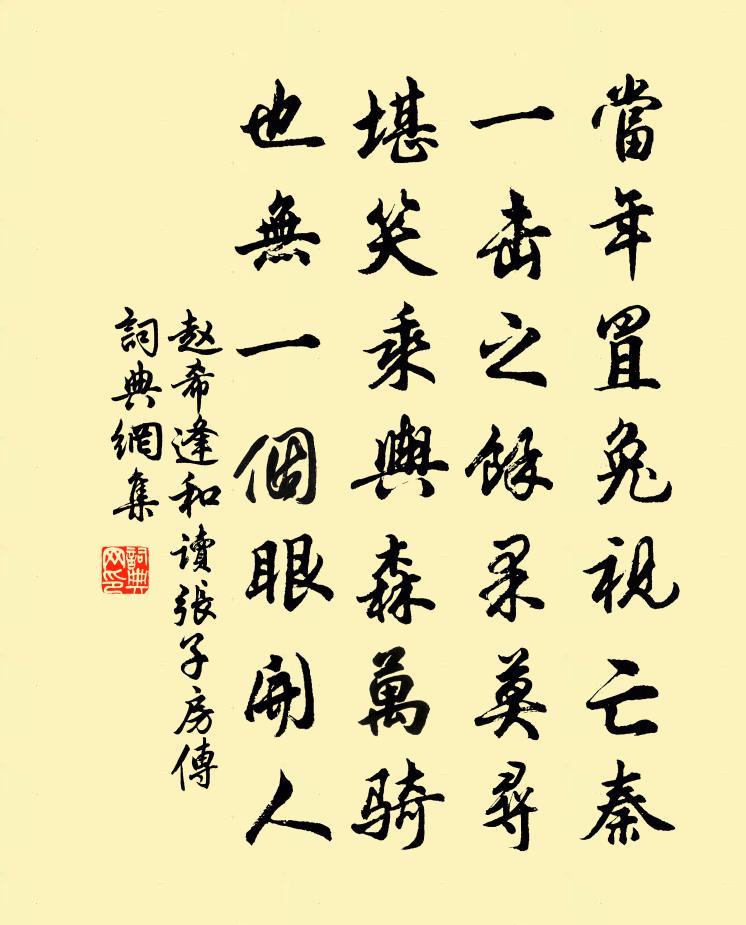 當年罝兔視亡秦
一击之餘果莫尋
堪笑乘輿森萬骑
也無一個眼開人
赵希逢和讀張子房傳
詞典網集
詞典网印